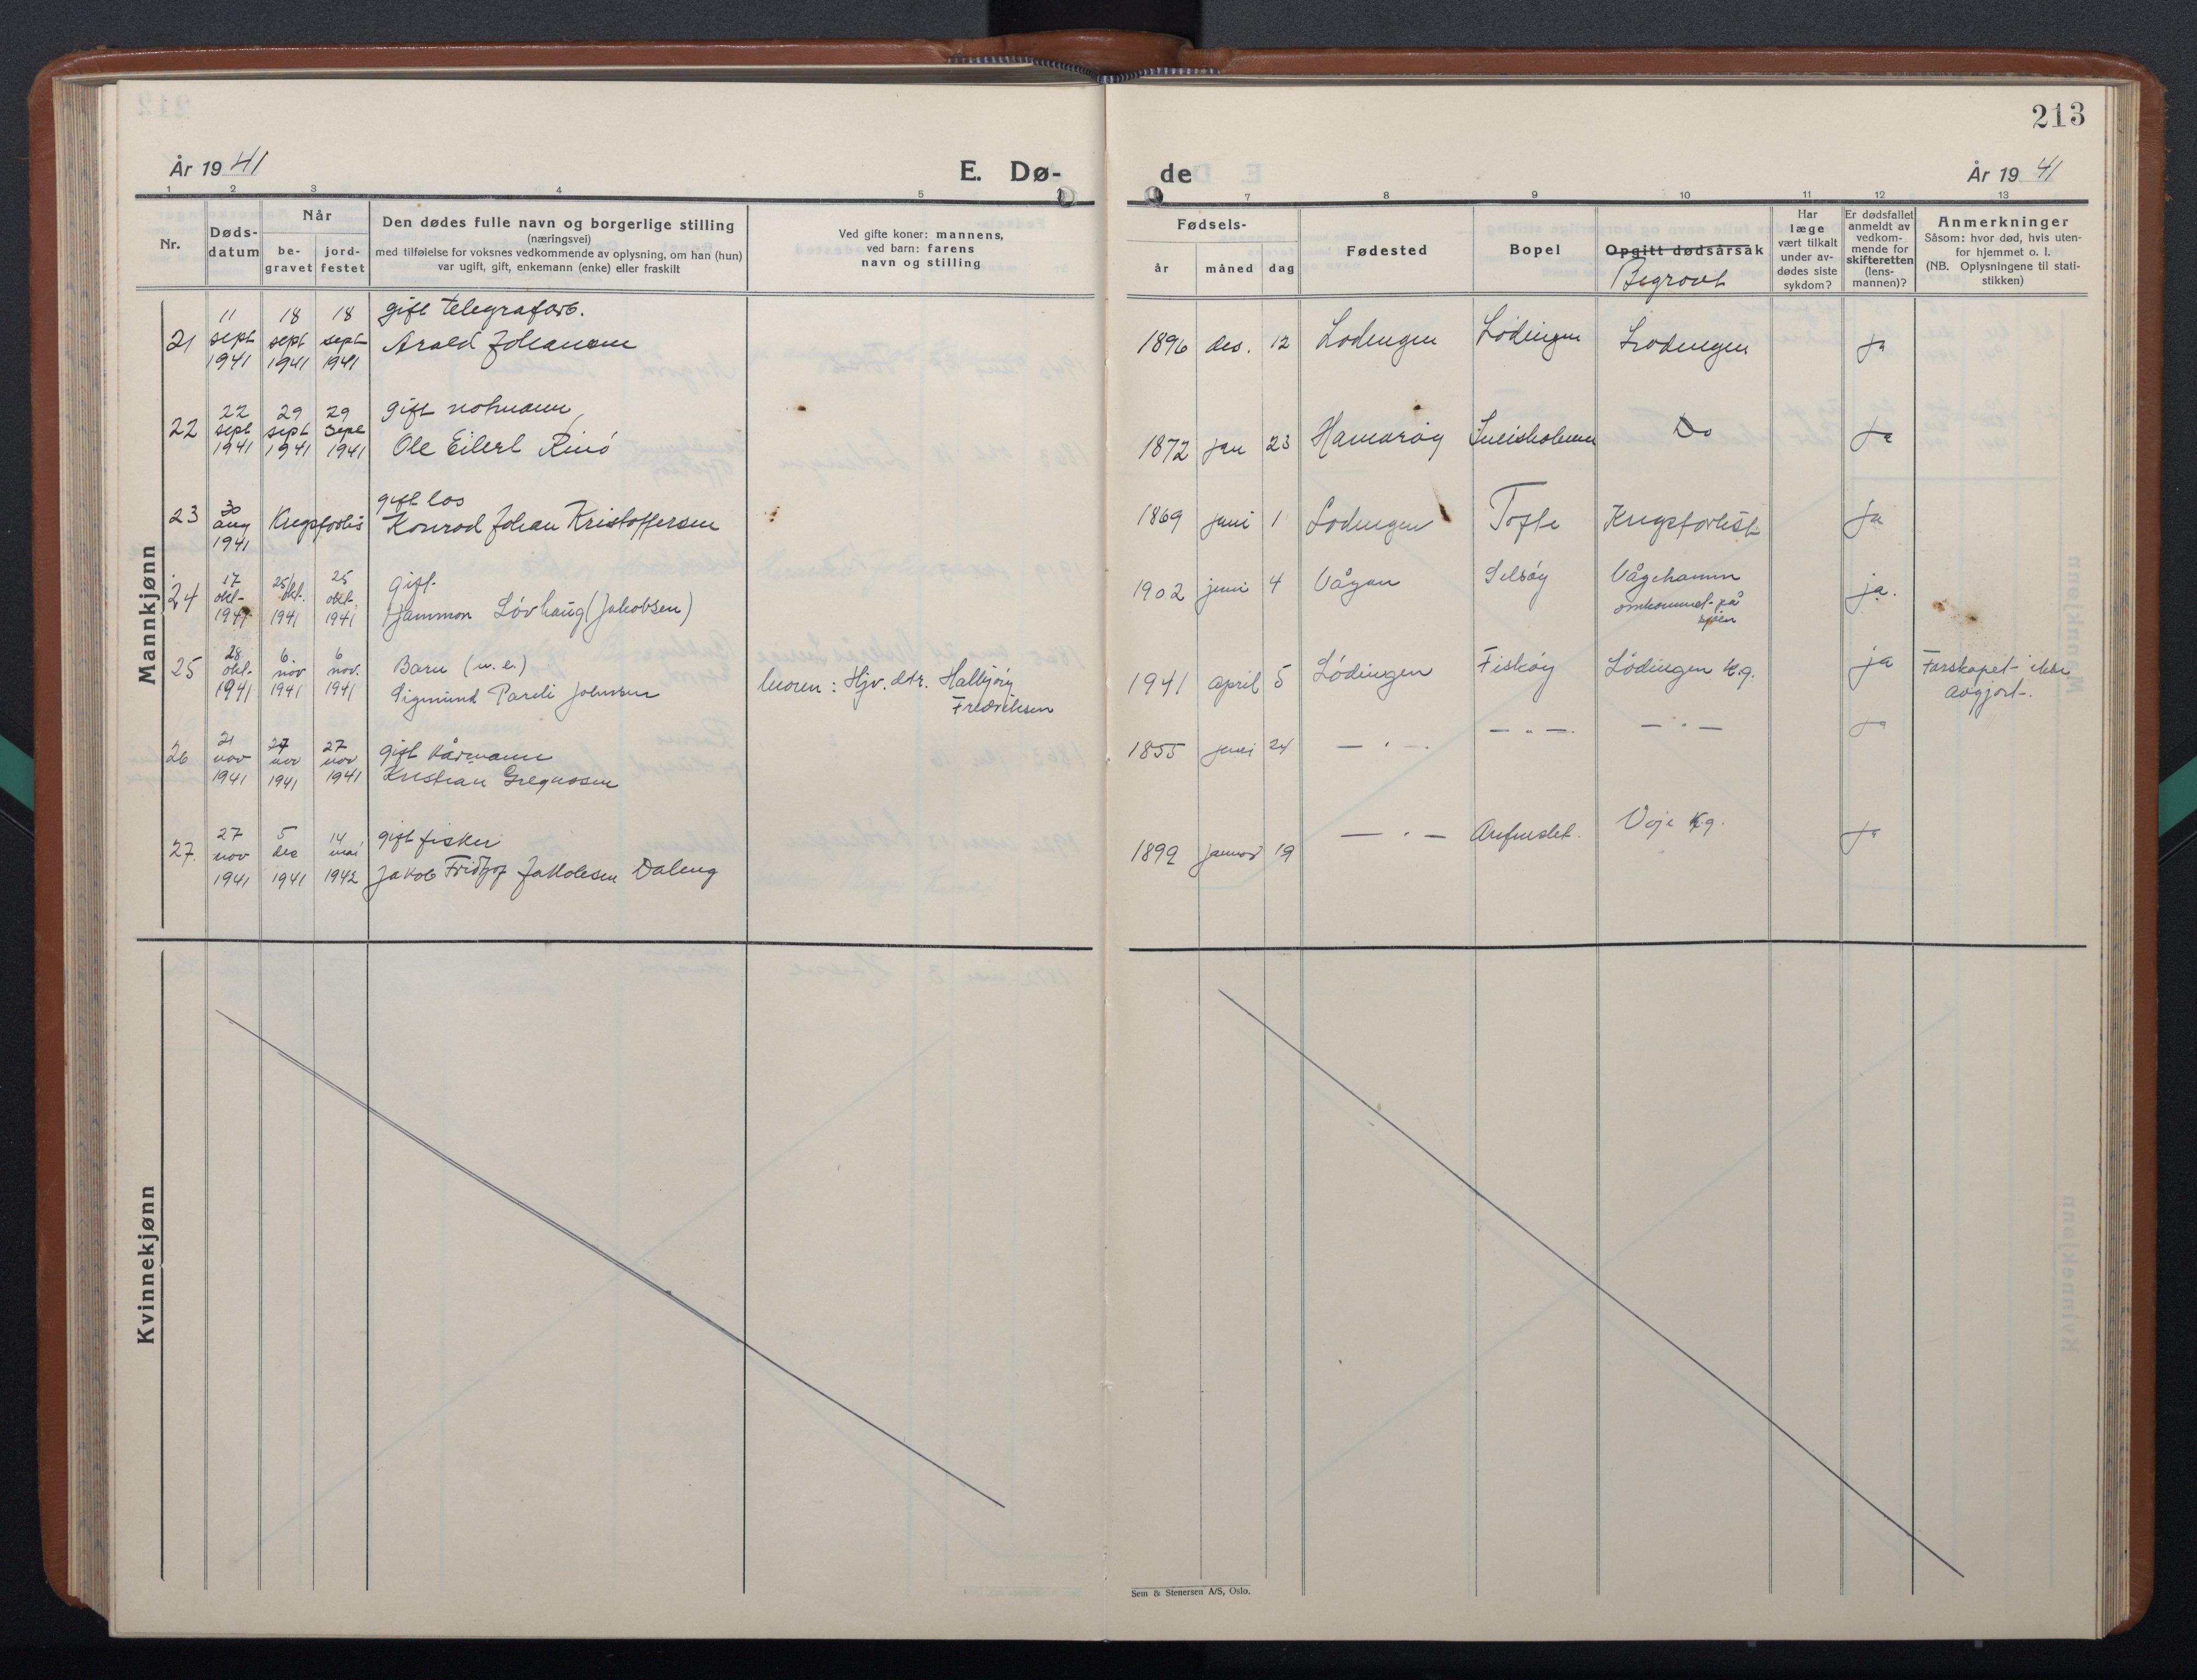 213
År 1941
E. Dø-
de
År 1941
1 2 3 4 5
7 8 9 10 11 12 13
Nr.
Døds-
datum
Når
be-
gravet
jord-
festet
Den dødes fulle navn og borgerlige stilling
(næringsvei)
med tilføielse for voksnes vedkommende av oplysning, om han (hun)
var ugift, gift, enkemann (enke) eller fraskilt
Ved gifte koner: mannens,
ved barn: farens
navn og stilling
Fødsels-
år måned dag
Fødested
Bopel
Opgitt dødsårsak
Begravet
Har
læge
vært tilkalt
under av-
dødes siste
sykdom?
Er dødsfallet
anmeldt av
vedkom-
mende for
skifteretten
(lens-
mannen)?
Anmerkninger
Såsom: hvor død, hvis uten-
for hjemmet o. l.
(NB. Oplysningene til stati-
stikken)
Mannkjønn
11 18 18 gift telegrafarb.
21 sept sept sept Arald Johansen 1896 des. 12 Lødingen Lødingen Lødingen ja
1941 1941 1941
22 29 29 gift notmann,
22 sept sept sept Ole Eilert Rinø 1872 jan 23 Hamarøy Sneisholmen Do ja
1941 1941 1941
30 gift los
23 aug Krigsforlis Konrad Johan Kristoffersen 1869 juni 1 Lødingen Tofte Krigsforlist ja
1941
17 25/ 25 gift
24 okt. okt. okt. Hjammon Løvhaug (Jakobsen) 1902 juni 4 Vågan Selsøy Vågehamn ja.
1941 1941 1941 omkommet på
sjøen
28 6. 6 Barn (u.e.)
25 okt. nov nov. Sigmund Pareli Johnsen moren: Hjv. dtr. Halbjörg 1941 april 5 Lödingen Fiskøy Lödingen Kg. ja Farskapet ikke
1941 1941 1941 Fredriksen avgjort.
21 27 27 gift kårmann
26 nov nov nov Kristian Gregusen 1855 juni 24 — " — — " — — " — ja
1941 1941 1941
27 5 14 gift fisker
27. nov des mai Jakob Fridtjof Jakobsen Daleng 1892 januar 19 — " — Arefneslet. Voje Kg. ja
1941 1941 1942
Kvinnekjønn
Sem & Stenersen A/S, Oslo.